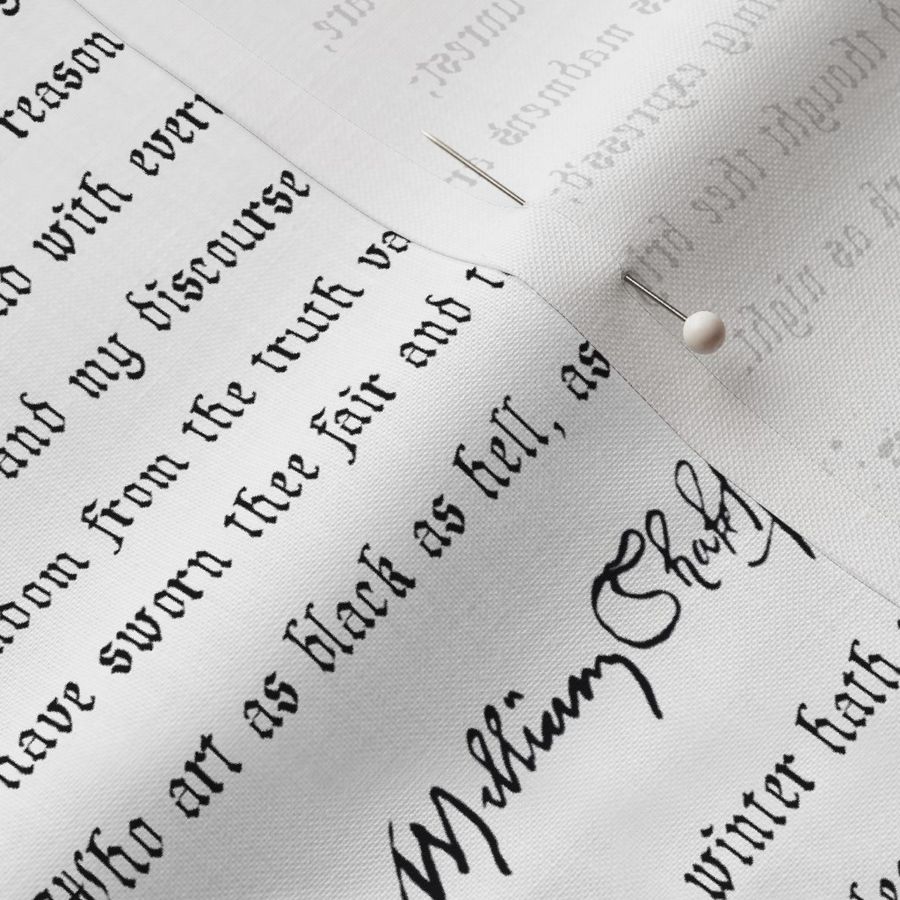 reason
with every
and my discourse
from the truth va
have sworn thee fair and t
Who art as black as hell, as
William Shaksp
winter hath
are,
unrest;
as madmen's
express'd;
thought thee bright
as night.